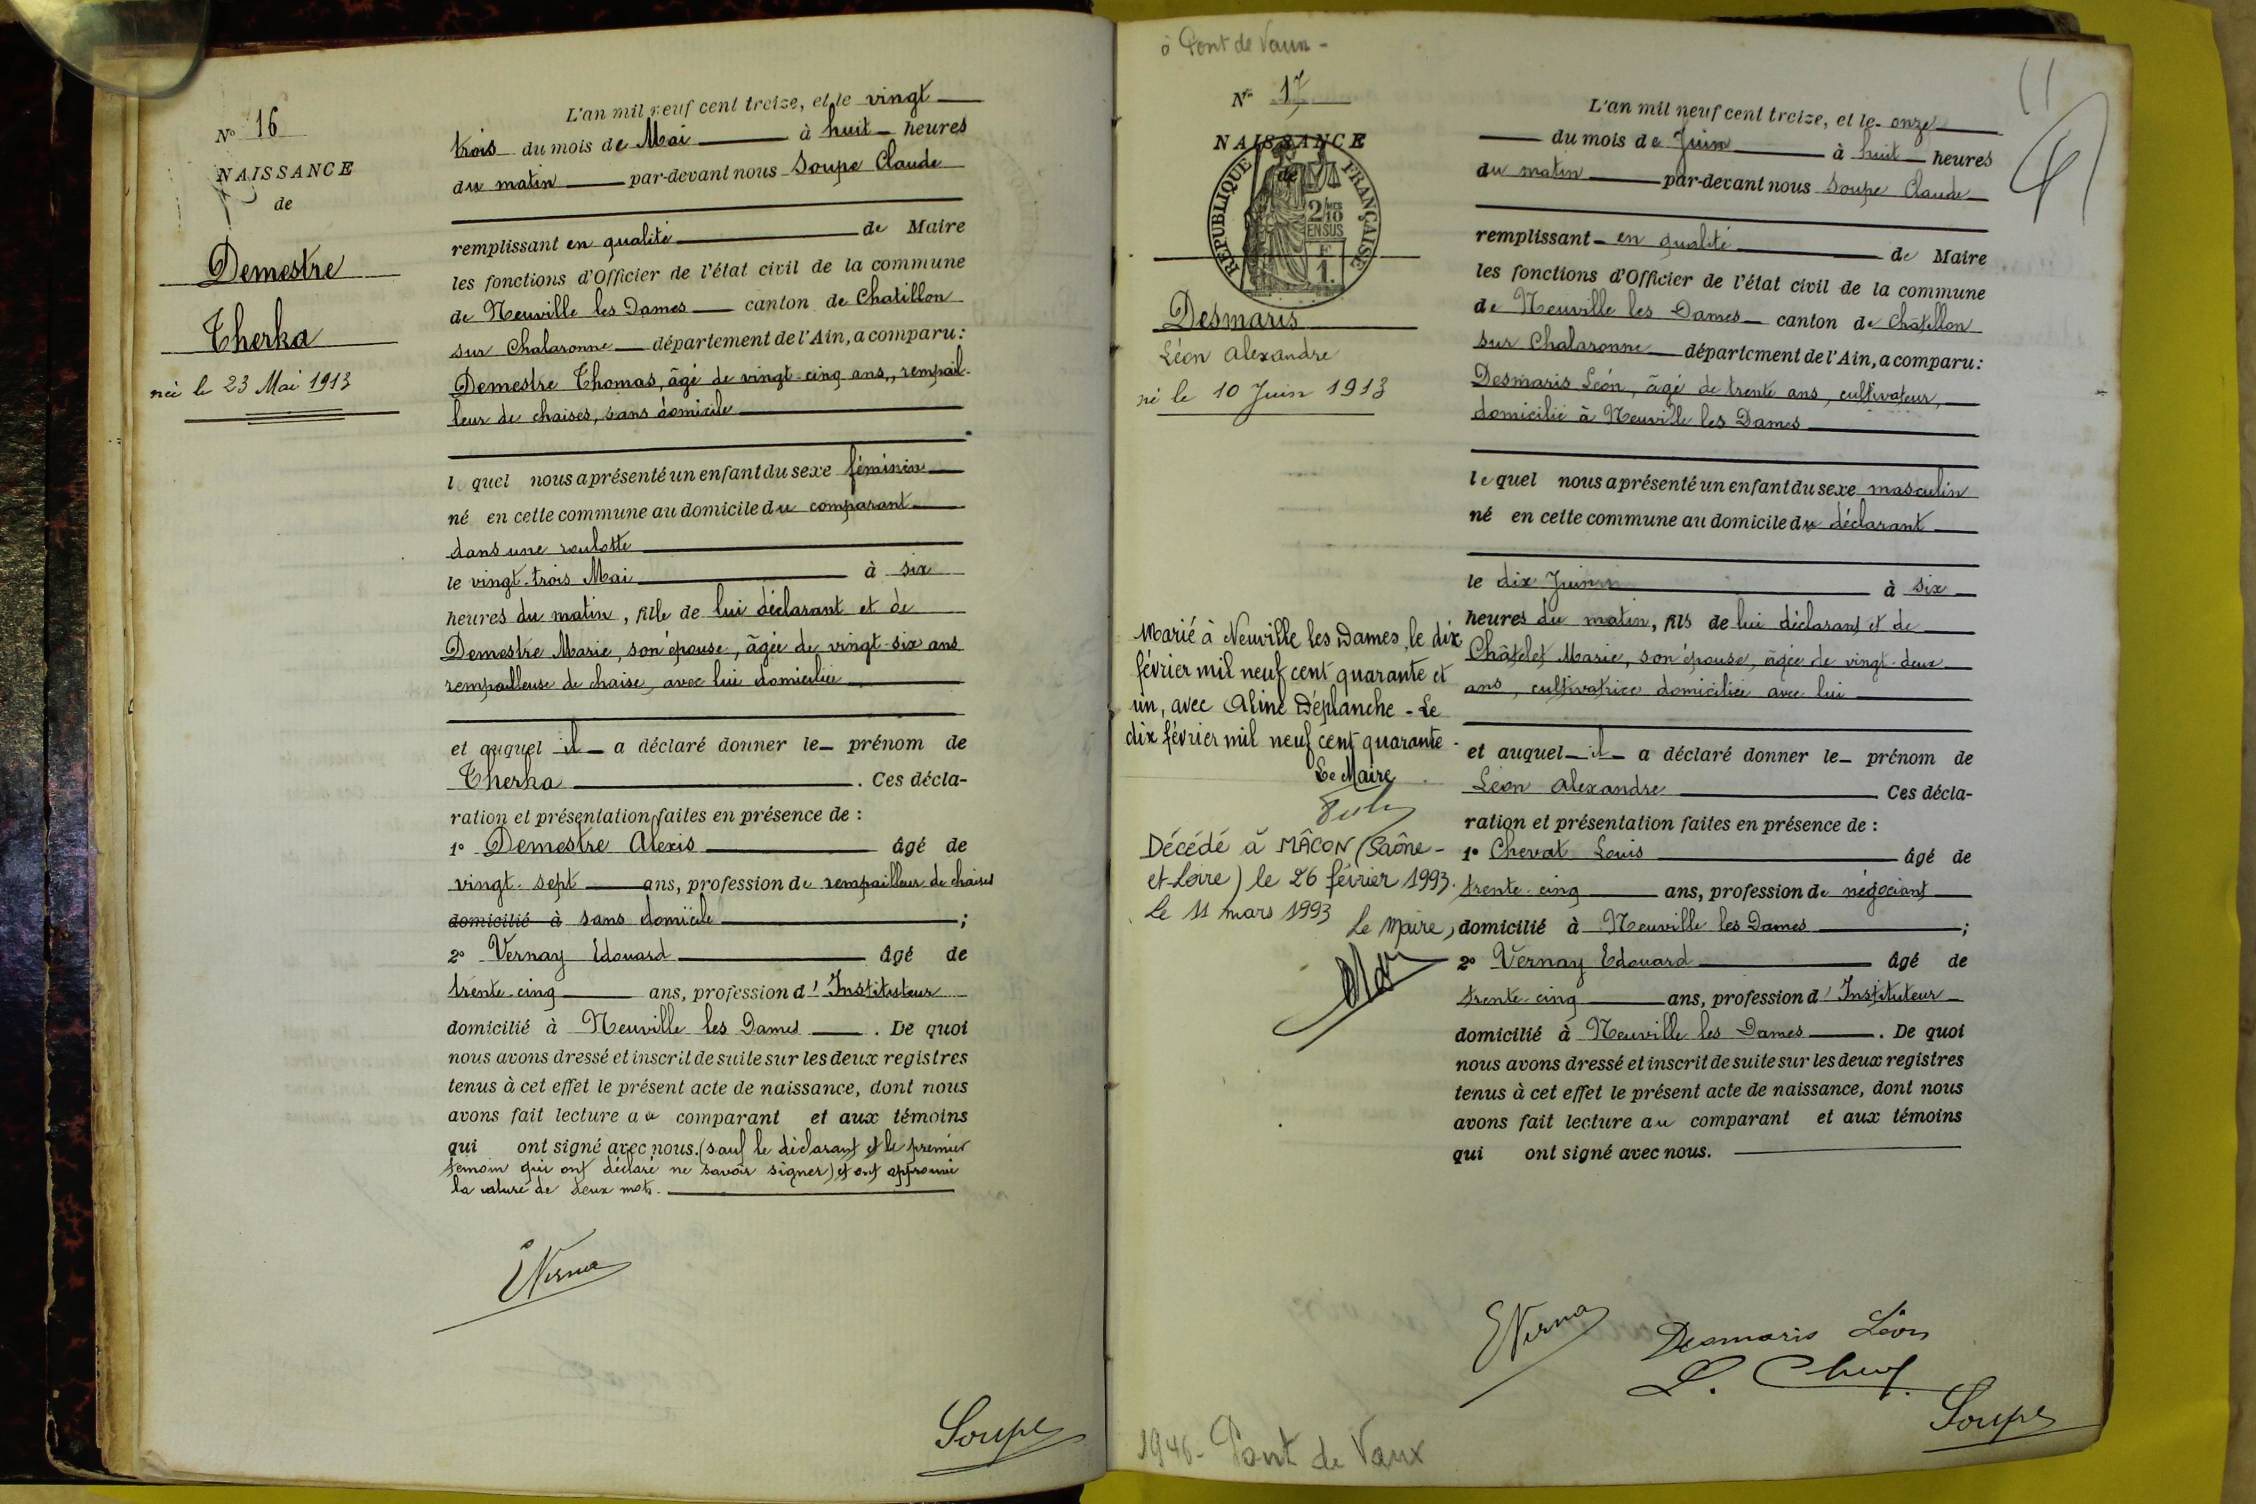 N° 16
NAISSANCE
de
Demestre
Therka
née le 23 Mai 1913
L'an mil neuf cent treize, et le vingt
trois du mois de Mai à huit heures
du matin par-devant nous Soupe Claude
remplissant en qualité de Maire
les fonctions d'Officier de l'état civil de la commune
de Neuville les Dames canton de Chatillon
sur Chalaronne département de l'Ain, a comparu :
Demestre Thomas, âgé de vingt-cinq ans, rempail-
leur de chaises, sans domicile
l quel nous a présenté un enfant du sexe féminin
né en cette commune au domicile du comparant
dans une roulotte
le vingt-trois Mai à six
heures du matin, fille de lui déclarant et de
Demestre Marie, son épouse, âgée de vingt-six ans
rempailleuse de chaise, avec lui domiciliée
et auquel il a déclaré donner le prénom de
Therka . Ces décla-
ration et présentation faites en présence de :
1° Demestre Alexis âgé de
vingt-sept ans, profession de rempailleur de chaises
domicilié à sans domicile ;
2° Vernay Edouard âgé de
trente-cinq ans, profession d'Instituteur
domicilié à Neuville les Dames . De quoi
nous avons dressé et inscrit de suite sur les deux registres
tenus à cet effet le présent acte de naissance, dont nous
avons fait lecture au comparant et aux témoins
qui ont signé avec nous. (sauf le déclarant et le premier
témoin qui ont déclaré ne savoir signer) et ont approuvé
la rature de deux mots.
EVernay
Soupe
à Pont de Vaux -
N° 17
NAISSANCE
de
REPUBLIQUE FRANÇAISE
2/10 MES
EN SUS
F
1.
Desmaris
Léon Alexandre
né le 10 Juin 1913
Marié à Neuville les Dames, le dix
février mil neuf cent quarante et
un, avec Aline Déplanche - Le
dix février mil neuf cent quarante -
Le Maire
Décédé à MÂCON (Saône-
et-Loire) le 26 février 1993.
Le 11 mars 1993
Le Maire,
L'an mil neuf cent treize, et le onze
du mois de Juin à huit heures
du matin par-devant nous Soupe Claude
remplissant en qualité de Maire
les fonctions d'Officier de l'état civil de la commune
de Neuville les Dames canton de Châtillon
sur Chalaronne département de l'Ain, a comparu :
Desmaris Léon, âgé de trente ans, cultivateur,
domicilié à Neuville les Dames
le quel nous a présenté un enfant du sexe masculin
né en cette commune au domicile du déclarant
le dix Juin à six
heures du matin, fils de lui déclarant et de
Châtelet Marie, son épouse, âgée de vingt-deux
ans, cultivatrice domiciliée avec lui
et auquel il a déclaré donner le prénom de
Léon Alexandre Ces décla-
ration et présentation faites en présence de :
1° Chevat Louis âgé de
trente-cinq ans, profession de négociant
domicilié à Neuville les Dames ;
2° Vernay Edouard âgé de
trente-cinq ans, profession d'Instituteur
domicilié à Neuville les Dames . De quoi
nous avons dressé et inscrit de suite sur les deux registres
tenus à cet effet le présent acte de naissance, dont nous
avons fait lecture au comparant et aux témoins
qui ont signé avec nous.
EVernay
Desmaris Léon
Soupe
1946 - Pont de Vaux